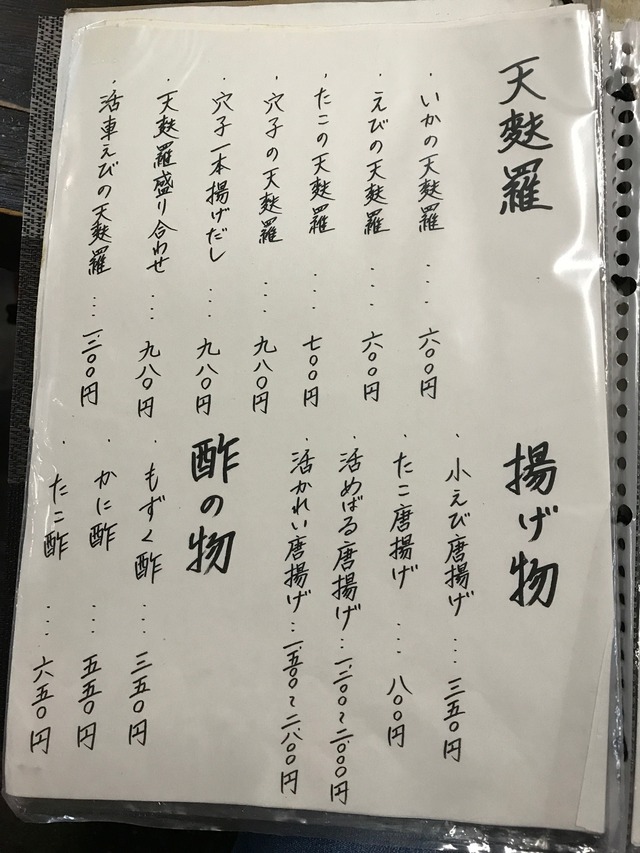 天麩羅
・いかの天麩羅 … 六〇〇円
・えびの天麩羅 … 六〇〇円
・たこの天麩羅 … 七〇〇円
・穴子の天麩羅 … 九八〇円
・穴子一本揚げだし … 九八〇円
・天麩羅盛り合わせ … 九八〇円
・活車えびの天麩羅 … 一、二〇〇円
揚げ物
・小えび唐揚げ … 三五〇円
・たこ唐揚げ … 八〇〇円
・活めばる唐揚げ … 一、二〇〇〜二、〇〇〇円
・活かれい唐揚げ … 一、五〇〇〜二、八〇〇円
酢の物
・もずく酢 … 三五〇円
・かに酢 … 五五〇円
・たこ酢 … 六五〇円